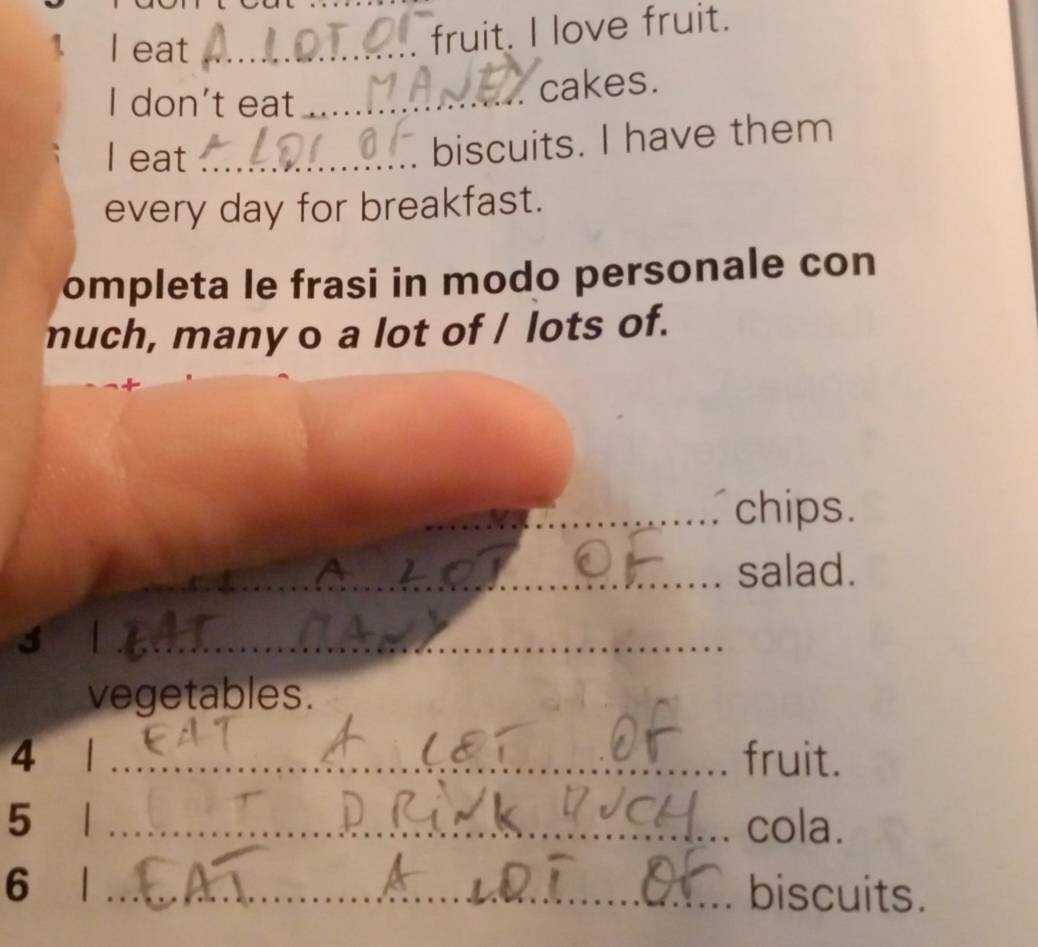 I eat A LOT OF fruit. I love fruit.
I don't eat MANEY cakes.
I eat A LOT OF biscuits. I have them
every day for breakfast.
ompleta le frasi in modo personale con
much, many o a lot of / lots of.
chips.
A LOT OF salad.
3 I EAT MANY
vegetables.
4 I EAT A LOT OF fruit.
5 I DRINK MUCH cola.
6 I EAT A LOT OF biscuits.